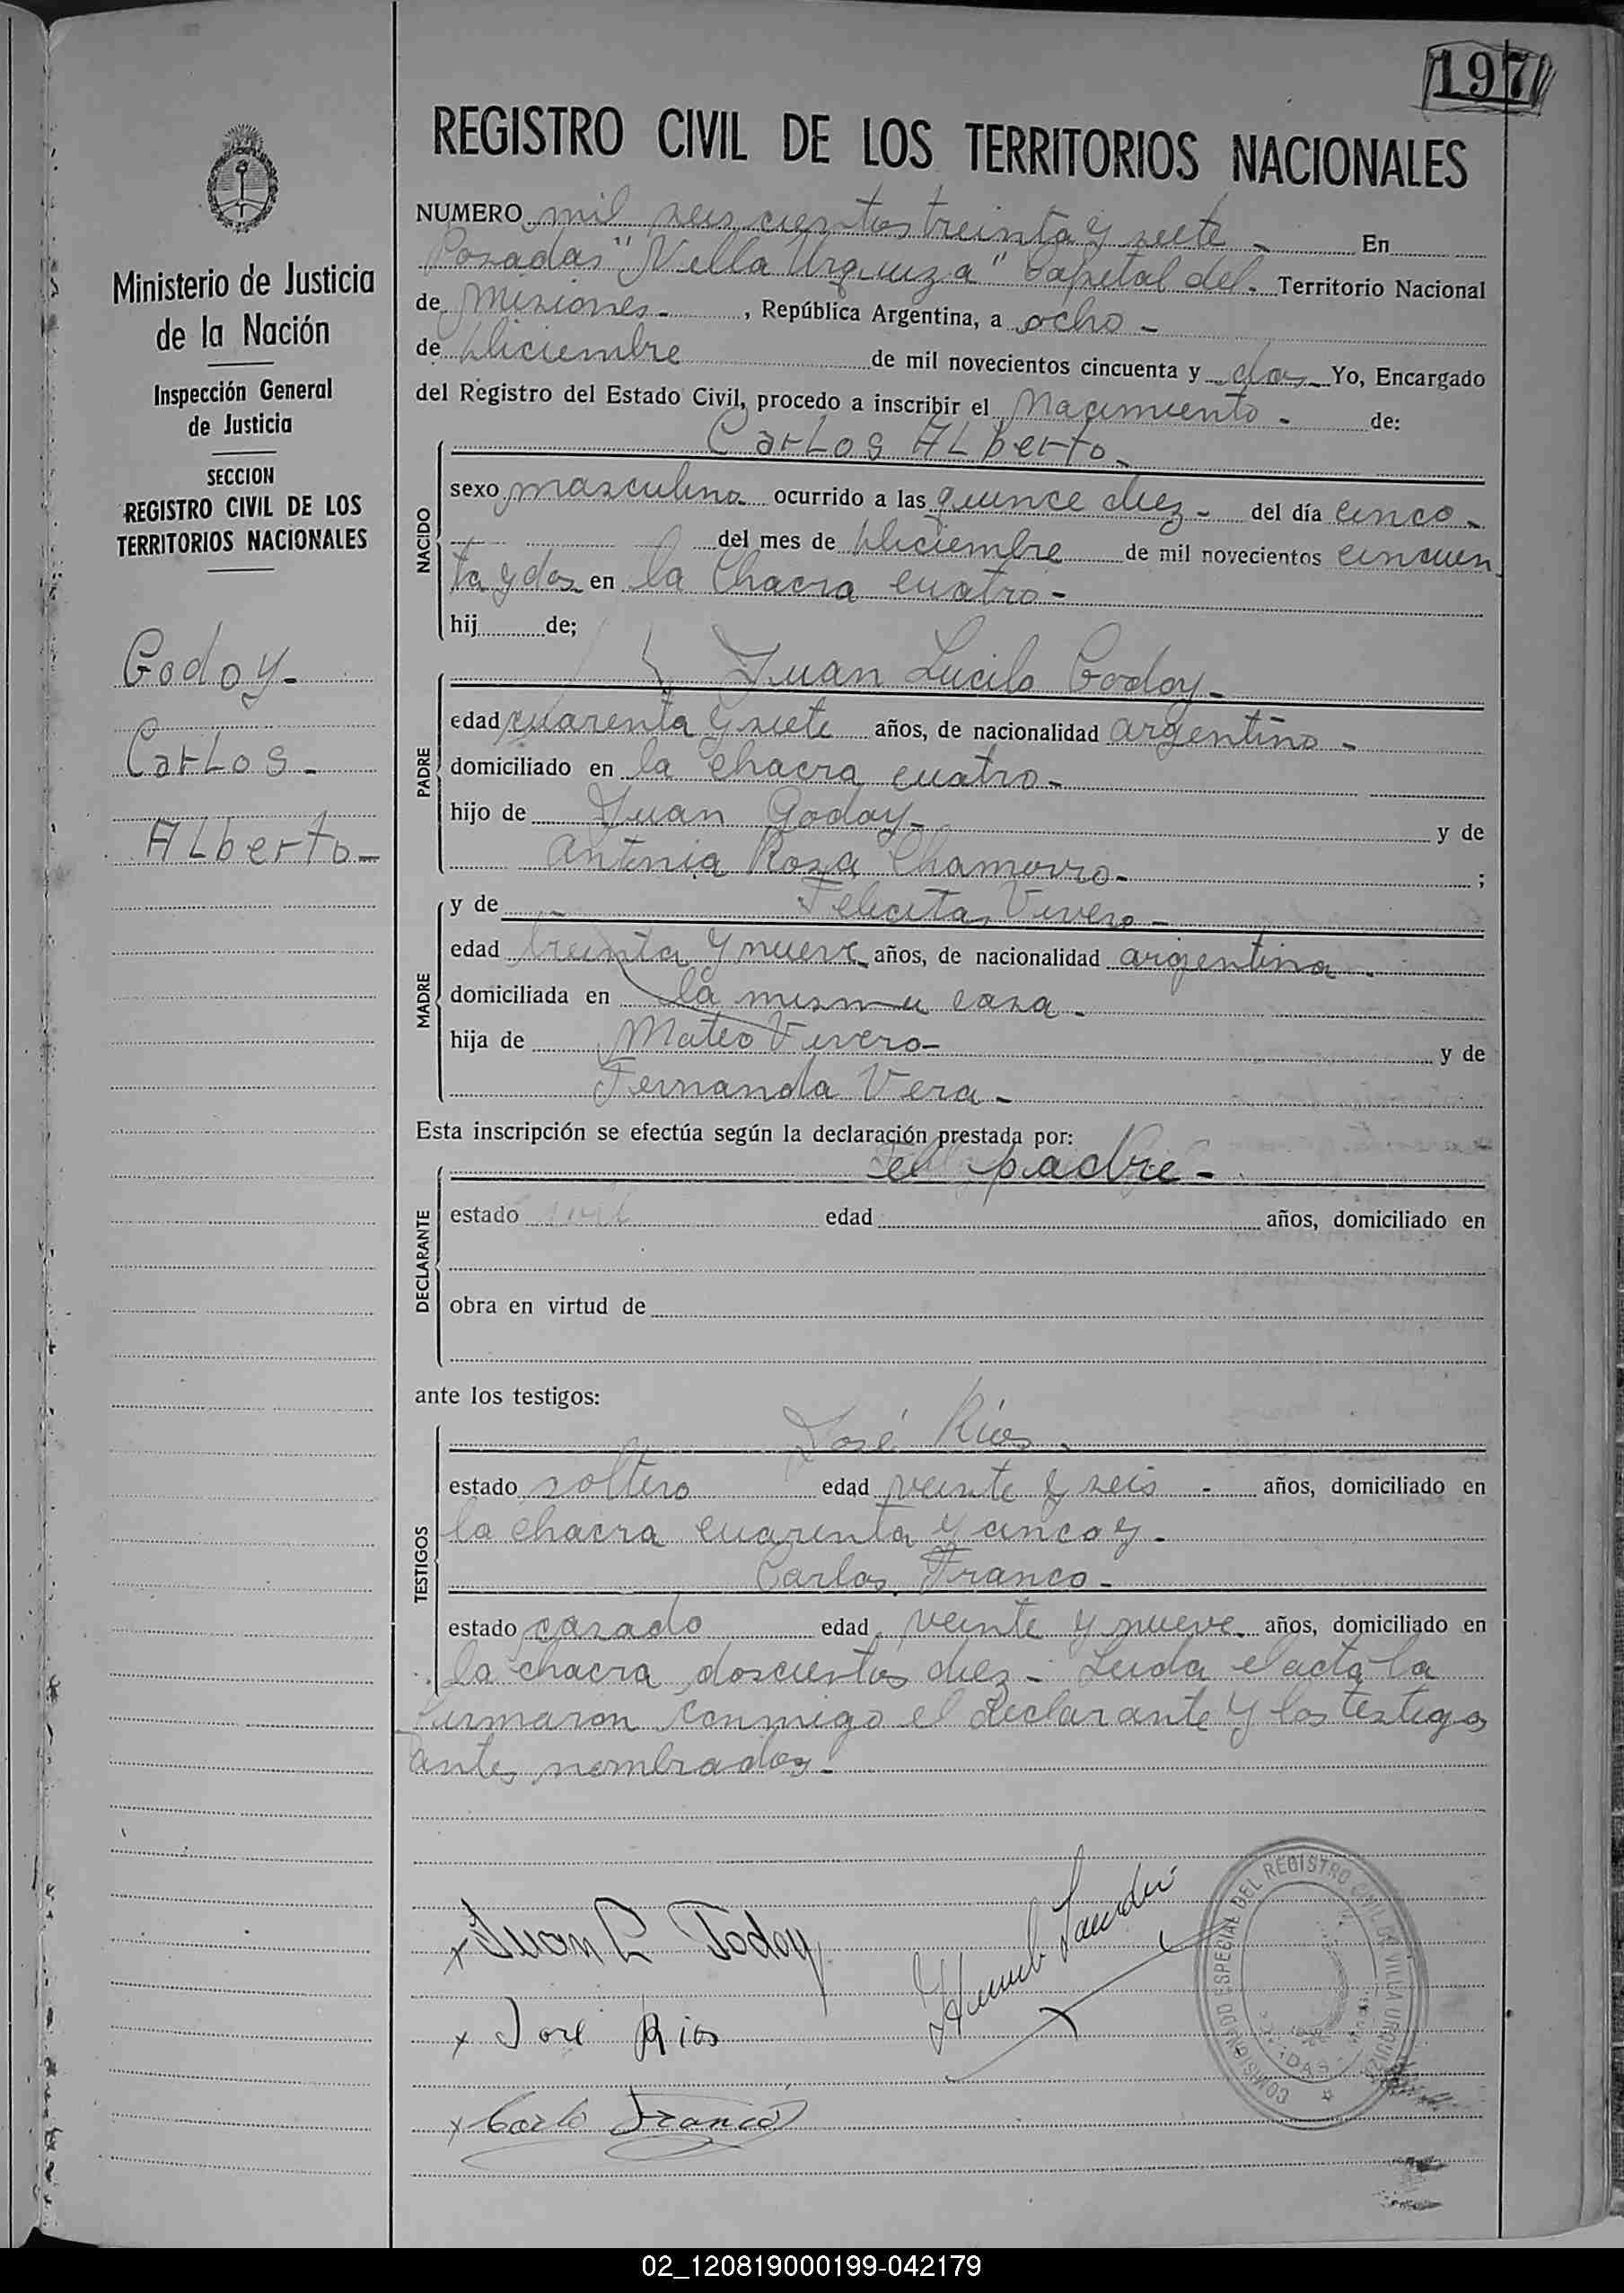 197
REGISTRO CIVIL DE LOS TERRITORIOS NACIONALES
Ministerio de Justicia
de la Nación
Inspección General
de Justicia
SECCION
REGISTRO CIVIL DE LOS
TERRITORIOS NACIONALES
Godoy-
Carlos-
Alberto-
NUMERO mil seiscientos treinta y siete - En
Posadas "Villa Urquiza" Capital del - Territorio Nacional
de Misiones - , República Argentina, a ocho -
de Diciembre de mil novecientos cincuenta y dos - Yo, Encargado
del Registro del Estado Civil, procedo a inscribir el Nacimiento - de:
Carlos Alberto -
NACIDO
sexo masculino ocurrido a las quince diez - del día cinco -
del mes de Diciembre de mil novecientos cincuen
ta y dos en la Chacra cuatro -
hij de;
Juan Lucilo Godoy -
PADRE
edad cuarenta y siete años, de nacionalidad argentino -
domiciliado en la chacra cuatro -
hijo de Juan Godoy - y de
Antonia Rosa Chamorro - ;
y de Felicita Vivero -
MADRE
edad treinta y nueve años, de nacionalidad argentina -
domiciliada en la misma casa -
hija de Mateo Vivero - y de
Fernanda Vera -
Esta inscripción se efectúa según la declaración prestada por:
el padre -
DECLARANTE
estado edad años, domiciliado en
obra en virtud de
ante los testigos:
José Ríos -
TESTIGOS
estado soltero edad veinte y seis - años, domiciliado en
la chacra cuarenta y cinco y -
Carlos Franco -
estado casado edad veinte y nueve años, domiciliado en
la chacra doscientos diez - Leida el acta la
firmaron conmigo el declarante y los testigos
antes nombrados -
x Juan L Godoy
x José Rios
x Carlo Franco
COMISIONADO ESPECIAL DEL REGISTRO CIVIL DE VILLA URQUIZA
02_120819000199-042179